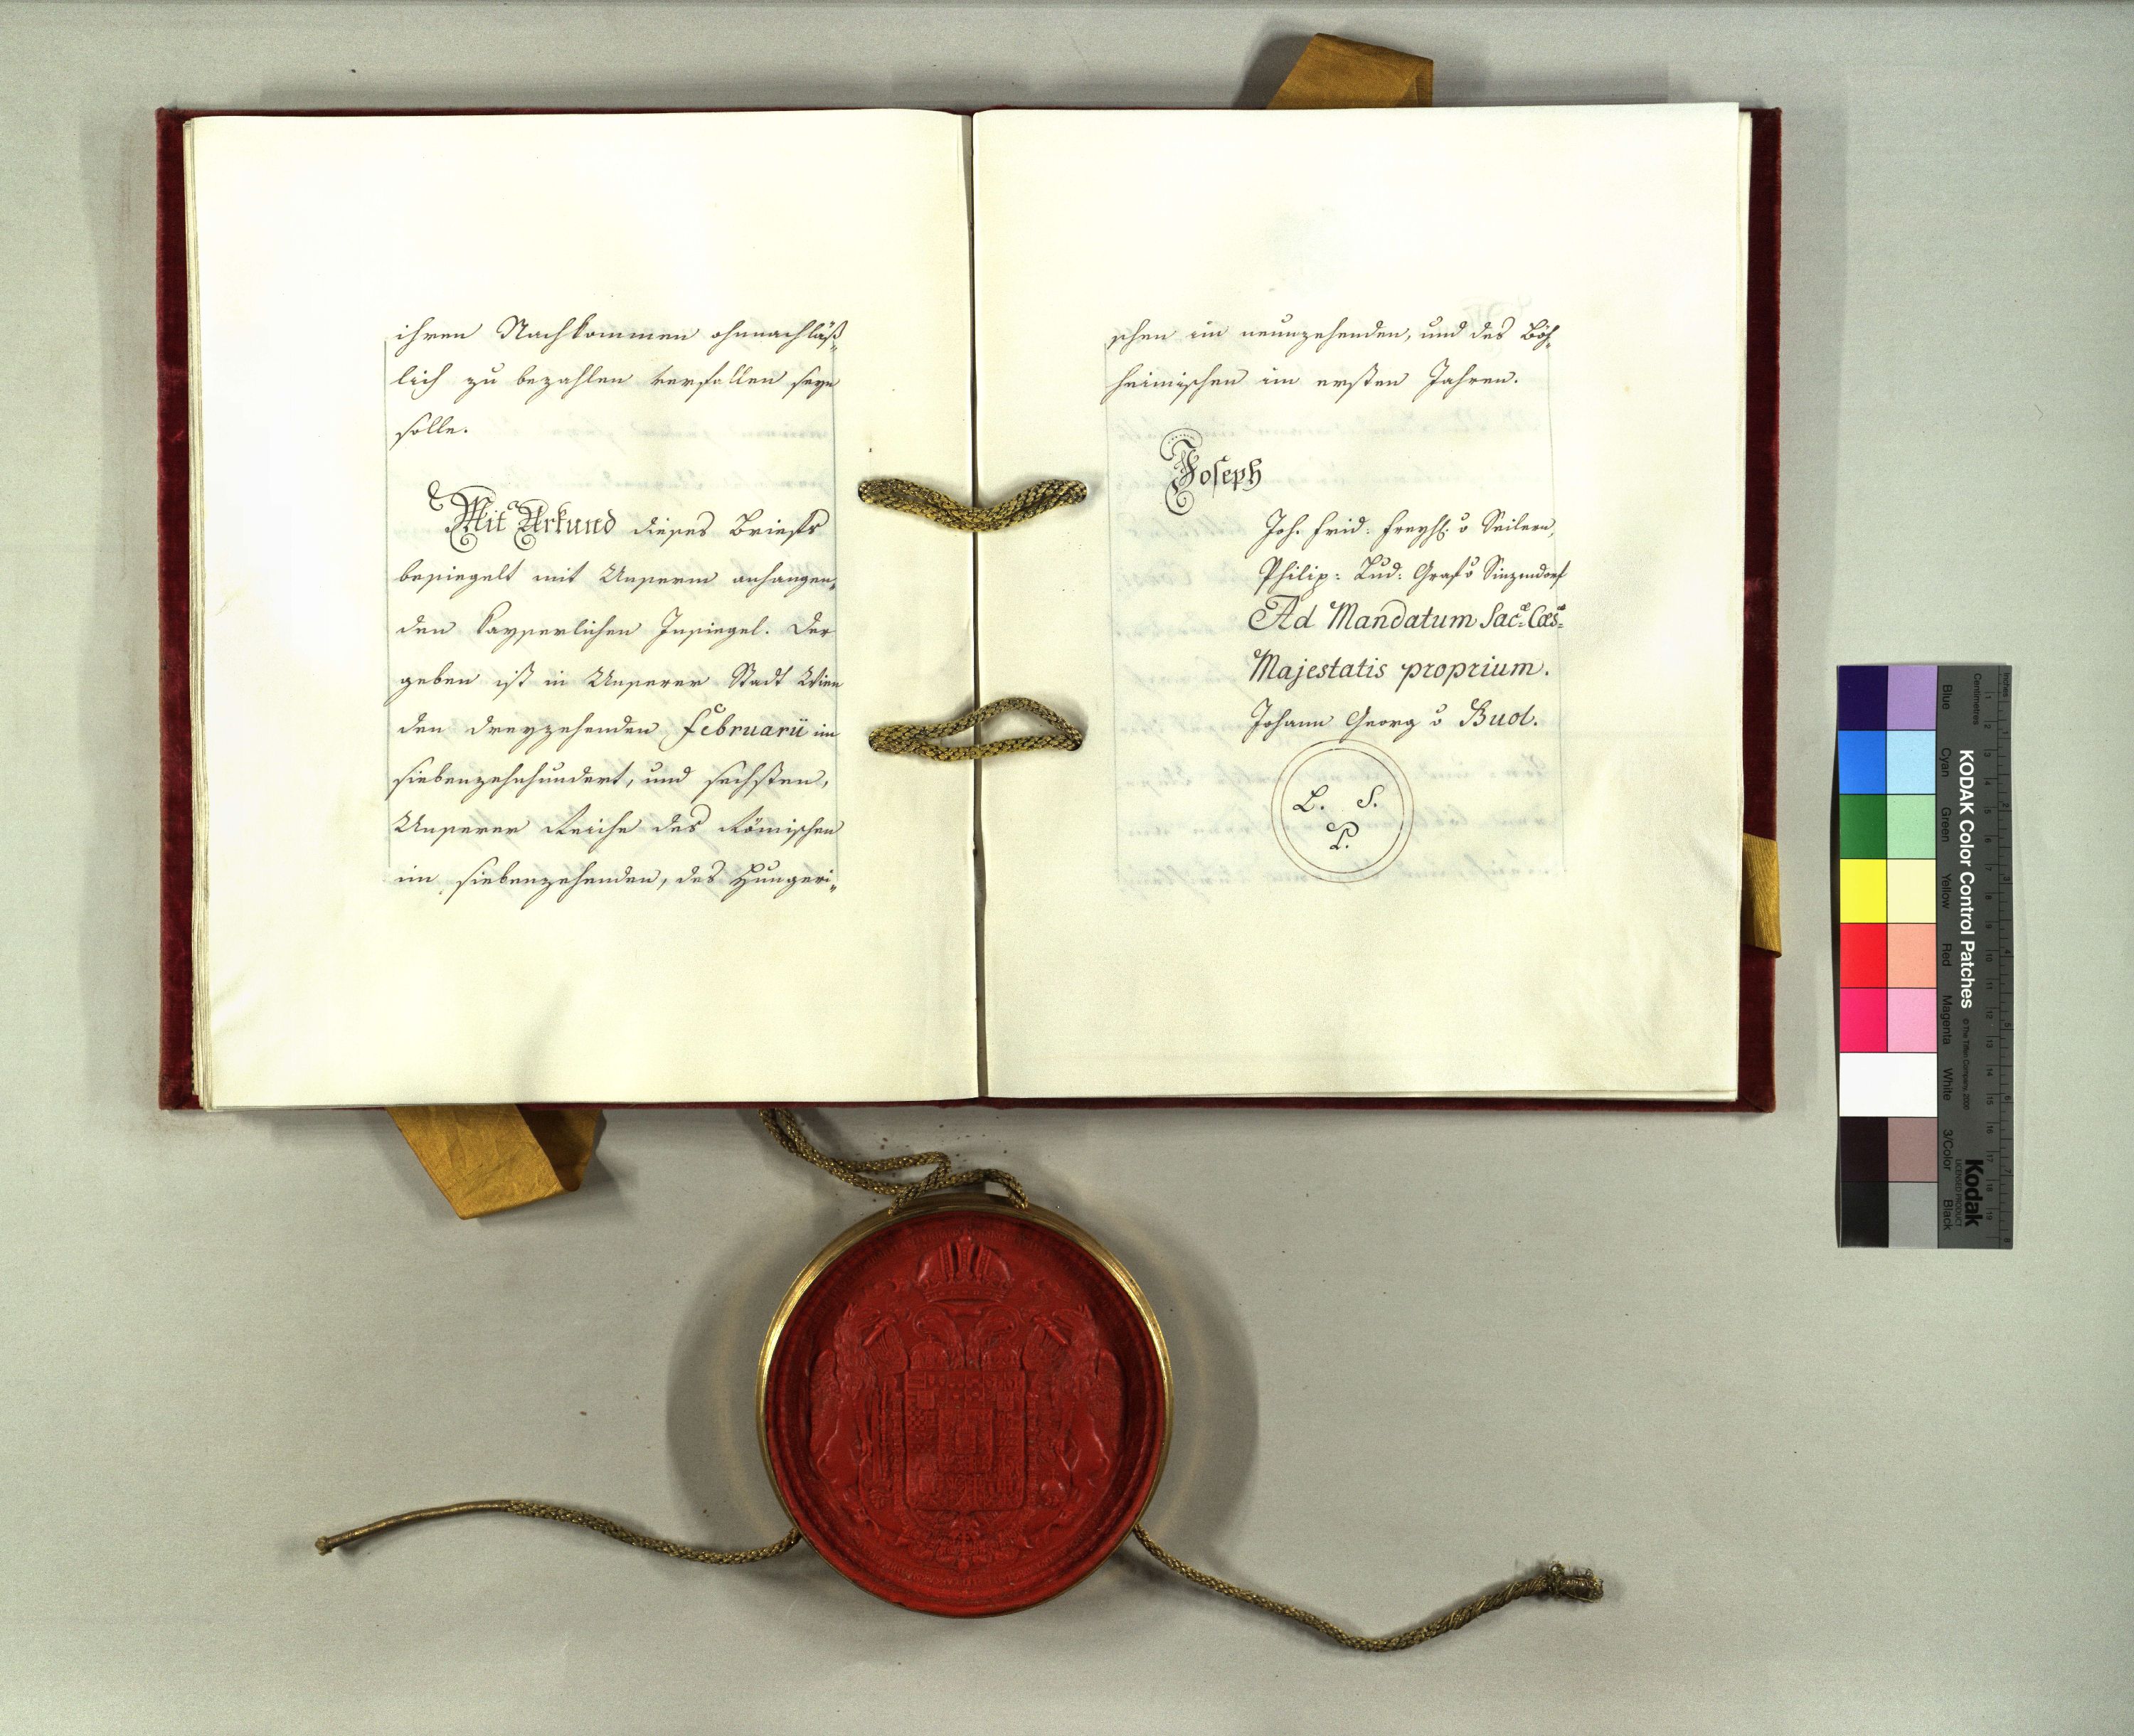 ihren Nachkommen ohnnachläß-
lich zu bezahlen verfallen seyn
solle.
Mit Urkund dieses Briefs
besiegelt mit Unserm anhangen-
den Kayserlichen Insiegel. Der
geben ist in Unserer Stadt Wien
den dreyzehenden Februarii im
siebenzehnhundert, und sechsten,
Unserer Reiche des Römischen
im siebenzehenden, des Hungeri-
schen im neunzehenden, und des Böh-
heimischen im ersten Jahren.
Joseph
Joh. Frid: Freyh: v Seilern,
Philip: Lud: Graf v Sinzendorf
Ad Mandatum Sac:ae Caes:ae
Majestatis proprium.
Johann Georg v Buol.
L. S.
P.
KODAK Color Control Patches
© The Tiffen Company, 2000
Kodak
LICENSED PRODUCT
Blue
Cyan
Green
Yellow
Red
Magenta
White
3/Color
Black
Inches
Centimetres